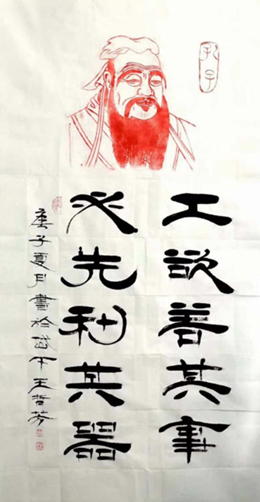 孔子
工欲善其事
必先利其器
庚子夏月書於岱下王哲芳